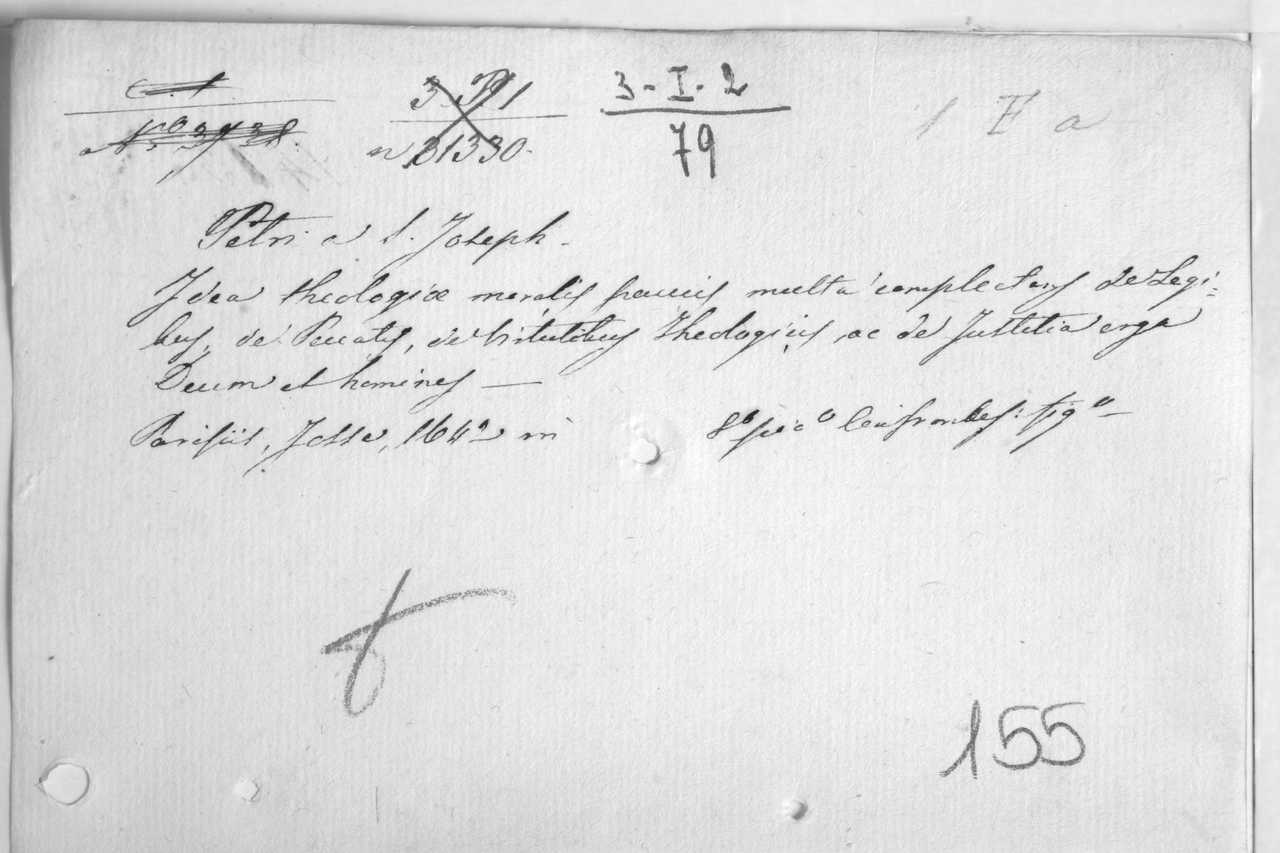 3-I-2
79
1 F a
n 31330.
Petri a S. Joseph.
Idea theologiæ moralis paucis multa complectens de Legi=
bus, de Peccatis, de Virtutibus Theologicis, ac de Justitia erga
Deum et homines —
Parisiis, Josse, 1642 in 8º
155